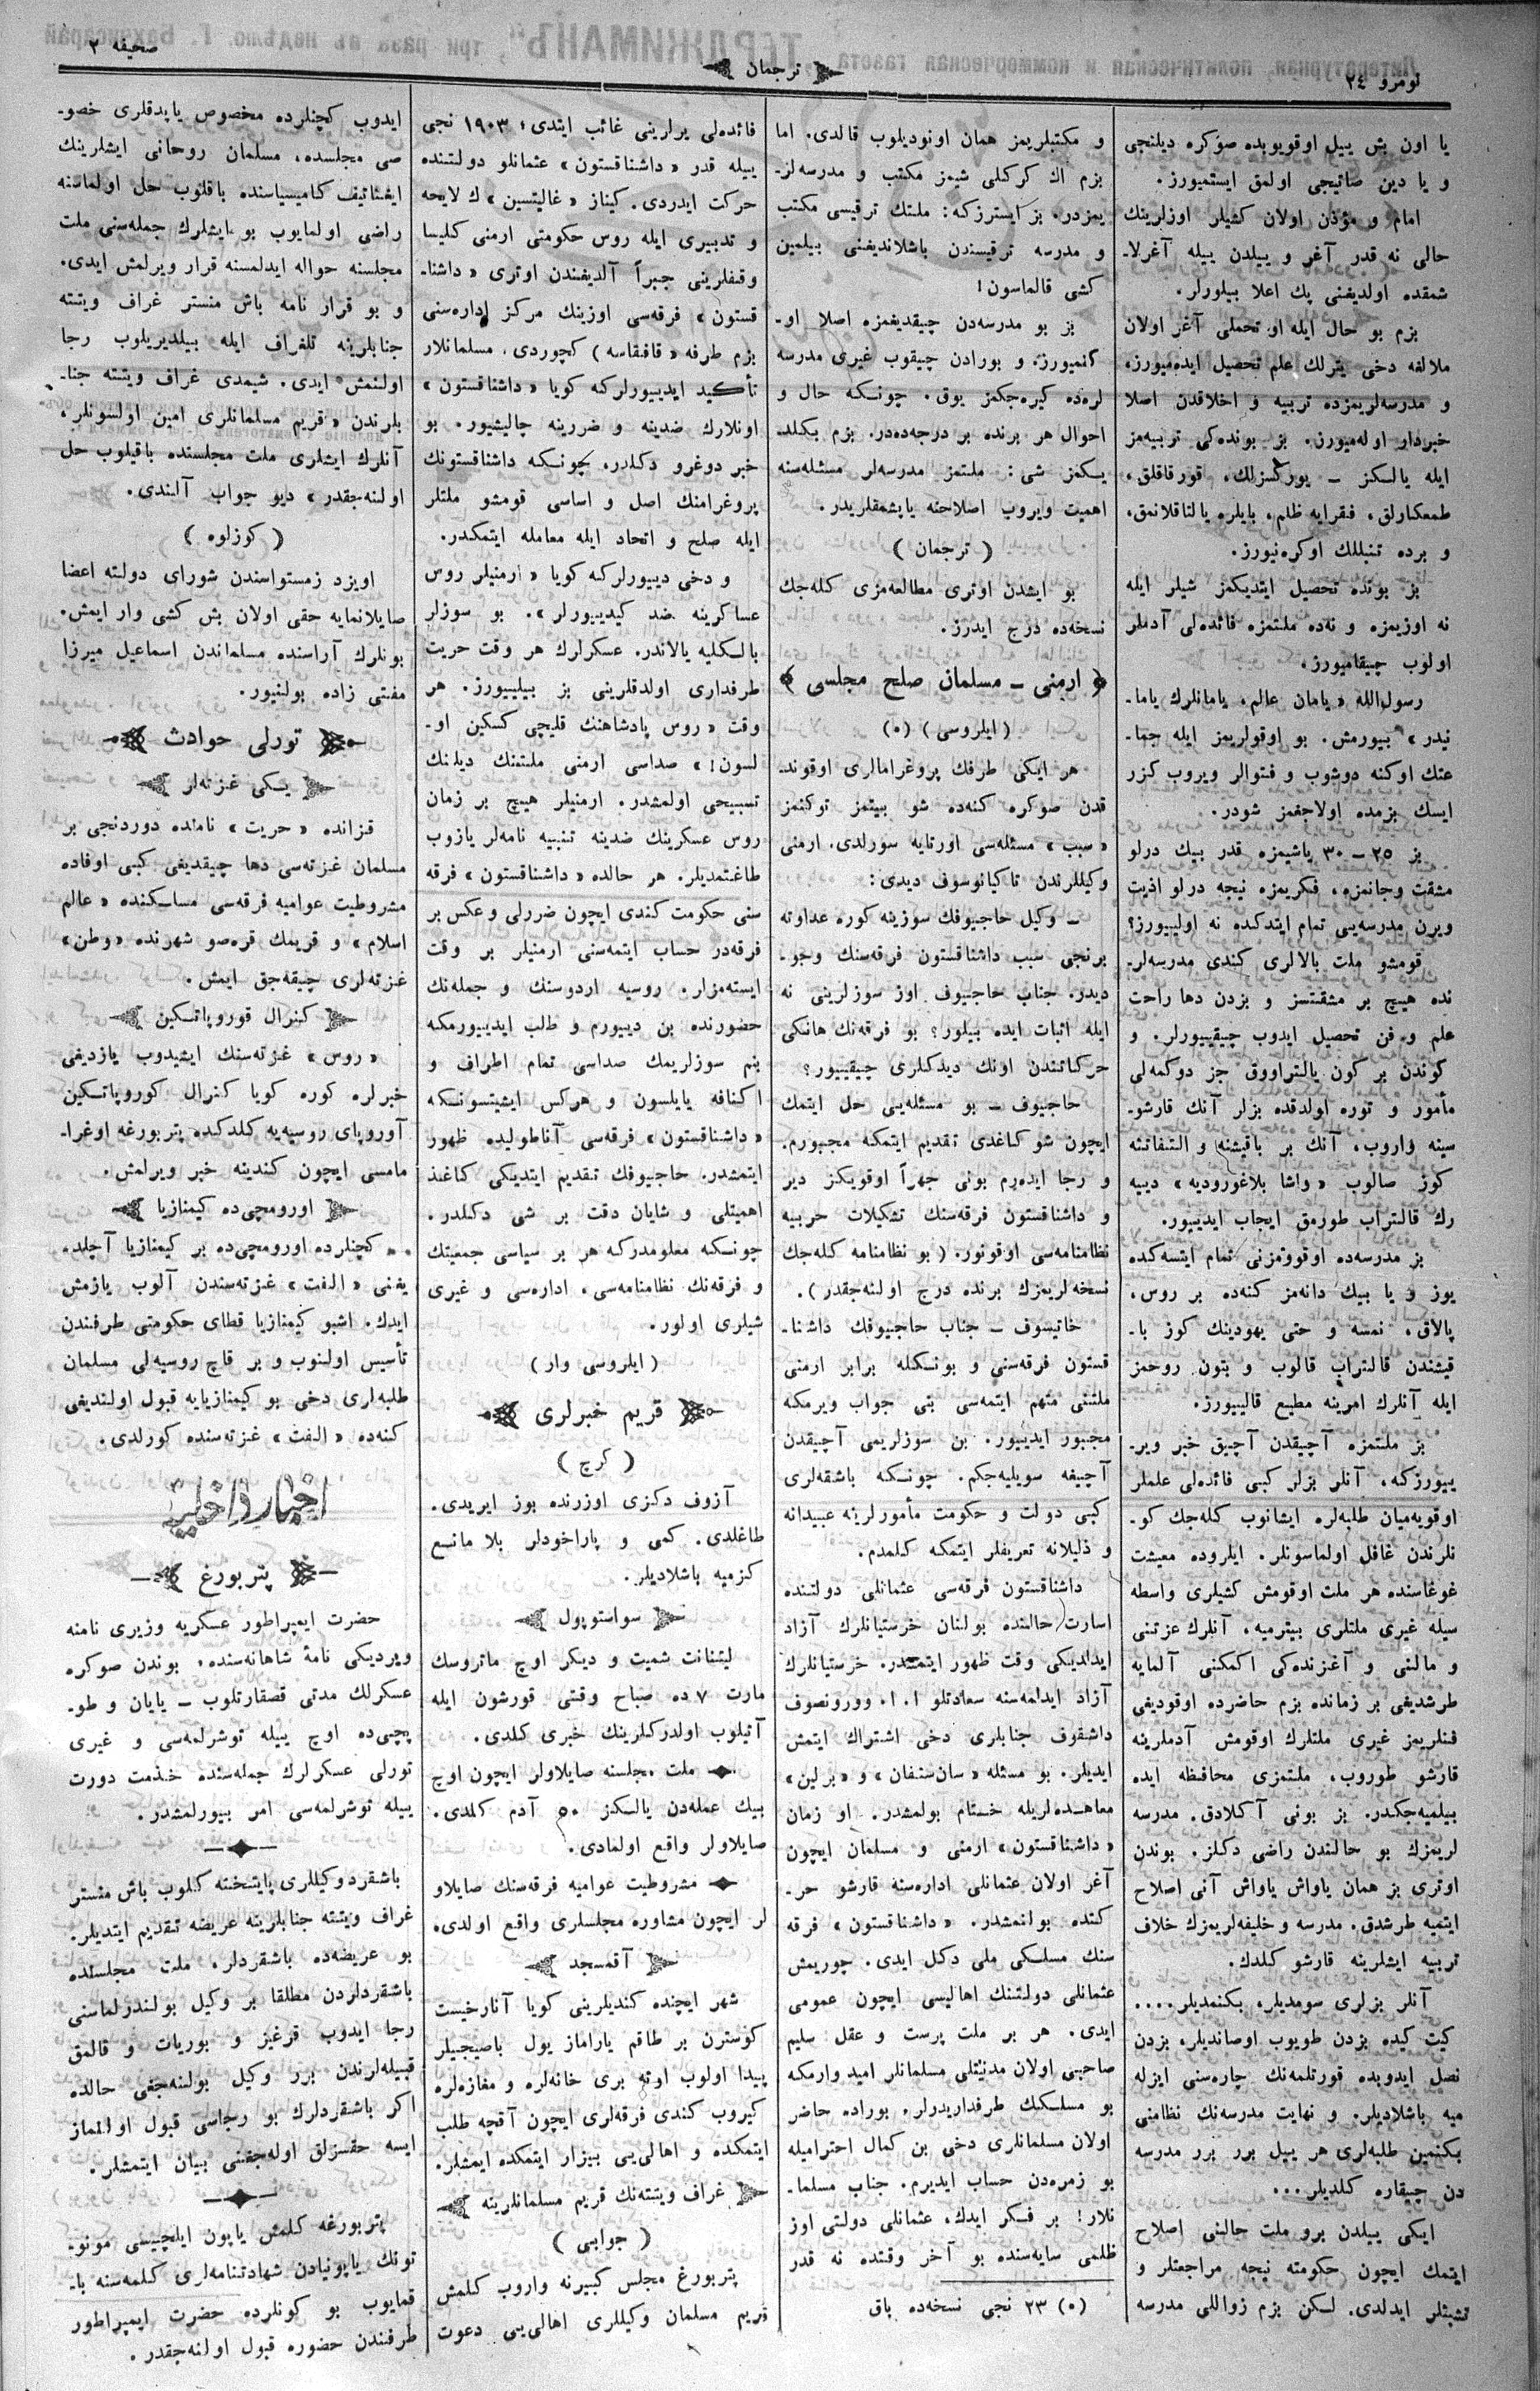 نومرو ٢٤
ترجمان
صحيفه ٢
يا اون بش ييل اوقويوبده صوكره ديلنجى
و يا دين صاتيجى اولمق ايستميورز.
امام و مؤذن اولان كشيلر اوزلرينك
حالى نه قدر آغر و ييلدن ييله آغرلا-
شمقده اولديغنى پك اعلا بيلورلر.
بزم بو حال ايله او تحملى آغر اولان
ملالغه دخى يترلك علم تحصيل ايده‌ميورز،
و مدرسه‌لريمزده تربيه و اخلاقدن اصلا
خبردار اوله‌ميورز. بز بونده‌كى تربيه‌مز
ايله يالـكز ـ يوركسزلك، قورقاقلق،
طمعكارلق، فقرايه ظلم، بايلره يالتاقلانمق،
و برده تنبللك اوكره‌نيورز.
بز بونده تحصيل ايتديكمز شيلر ايله
نه اوزيمزه و نه‌ده ملتمزه فائده‌لى آدملر
اولوب چيقاميورز.
رسول‌الله «يامان عالم، يامانلرك ياما-
نيدر» بيورمش. بو اوقولريمز ايله جما-
عتك اوكنه دوشوب و فتوالر ويروب كزر
ايسك بزمده اولاجغمز شودر.
بز ٢٥ – ٣٠ ياشيمزه قدر بيك درلو
مشقت وجانمزه، فكريمزه نيجه درلو اذيت
ويرن مدرسه‌يى تمام ايتدكده نه اولييورز؟
قومشو ملت بالالرى كندى مدرسه‌لر-
نده هيچ بر مشقتسز و بزدن دها راحت
علم و فن تحصيل ايدوب چيقييورلر. و
كوندن بر كون يالتراووق جز دوكمه‌لى
مأمور و توره اولدقده بزلر آنك قارشو-
سينه واروب، آنك بر باقيشنه و التفاتنه
كوز صالوب «واشا بلاغوروديه» دييه
رك قالتراب طورمق ايجاب ايدييور.
بز مدرسه‌ده اوقووتمزنى تمام ايتسه‌كده
يوز و يا بيك دانه‌مز كنه‌ده بر روس،
پالاق، نمسه و حتى يهودينك كوز با-
قيشندن قالتراب قالوب و بتون روحمز
ايله آنلرك امرينه مطيع قالييورز.
بز ملتمزه آچيقدن آچيق خبر وير-
ييورزكه، آنلر بزلر كبى فائده‌لى علملر
اوقويه‌ميان طلبه‌لره ايشانوب كله‌جك كو-
نلرندن غافل اولماسونلر. ايلروده معيشت
غوغاسنده هر ملت اوقومش كشيلرى واسطه
سيله غيرى ملتلرى بيترميه، آنلرك عزتنى
و مالنى و آغزنده‌كى اكمكنى آلمايه
طرشديغى بر زمانده بزم حاضرده اوقوديغى
فنلريمز غيرى ملتلرك اوقومش آدملرينه
قارشو طوروب، ملتمزى محافظه ايده
بيلميه‌جكدر. بز بونى آكلادق. مدرسه
لريمزك بو حالندن راضى دكلز. بوندن
اوترى بز همان ياواش ياواش آنى اصلاح
ايتميه طرشدق. مدرسه و خليفه‌لريمزك خلاف
تربيه ايشلرينه قارشو كلدك.
آنلر بزلرى سومديلر، بكنمديلر....
كيت كيده بزدن طويوب اوصانديلر، بزدن
نصل ايدوبده قورتلمه‌نك چاره‌سنى ايزله
ميه باشلاديلر. و نهايت مدرسه‌نك نظامنى
بكنمين طلبه‌لرى هر ييل برر برر مدرسه
دن چيقاره كلديلر...
ايكى ييلدن برو ملت حالنى اصلاح
ايتمك ايچون حكومته نيجه مراجعتلر و
تشبثلر ايدلدى. لـكن بزم زواللى مدرسه
و مكتبلريمز همان اونوديلوب قالدى. اما
بزم اك كركلى شيمز مكتب و مدرسه‌لر-
يمزدر. بز ايسترزكه: ملتك ترقيسى مكتب
و مدرسه ترقيسندن باشلانديغنى بيلمين
كشى قالماسون!
بز بو مدرسه‌دن چيقديغمزه اصلا او-
كنميورز. و بورادن چيقوب غيرى مدرسه
لره‌ده كيره‌جكمز يوق. چونكه حال و
احوال هر برنده بر درجه‌ده‌در. بزم بكلد-
يكمز شى: ملتمز مدرسه‌لر مسئله‌سنه
اهميت ويروب اصلاحنه ياپشمقلريدر.
( ترجمان )
بو ايشدن اوترى مطالعه‌مزى كله‌جك
نسخه‌ده درج ايدرز.
﴿ ارمنى – مسلمان صلح مجلسى ﴾
( ايلروسى ) (٠)
هر ايكى طرفك پروغرامالرى اوقوند-
قدن صوكره كنه‌ده شو بيتمز توكنمز
«سبب» مسئله‌سى اورتايه سورلدى. ارمنى
وكيللرندن تاكيانوسوف ديدى:
– وكيل حاجيوفك سوزينه كوره عداوته
برنجى سبب داشناقستون فرقه‌سنك وجو-
ديدر. جناب حاجيوف اوز سوزلرينى نه
ايله اثبات ايده بيلور؟ بو فرقه‌نك هانكى
حركاتندن اونك ديدكلرى چيقييور؟
حاجيوف – بو مسئله‌يى حل ايتمك
ايچون شو كاغدى تقديم ايتمكه مجبورم.
و رجا ايده‌رم بونى جهراً اوقويكز دير
و داشناقستون فرقه‌سنك تشكيلات حربيه
نظامنامه‌سى اوقونور. ( بو نظامنامه كله‌جك
نسخه‌لريمزك برنده درج اولنه‌جقدر ).
خاتيسوف – جناب حاجيوفك داشنا-
قستون فرقه‌سنى و بونـكله برابر ارمنى
ملتنى متهم ايتمه‌سى بنى جواب ويرمكه
مجبور ايدييور. بن سوزلريمى آچيقدن
آچيغه سويليه‌جكم. چونكه باشقه‌لرى
كبى دولت و حكومت مأمورلرينه عبيدانه
و ذليلانه تعريفلر ايتمكه كلمدم.
داشناقستون فرقه‌سى عثمانلى دولتنده
اسارت حالنده بولنان خرستيانلرك آزاد
ايدلديكى وقت ظهور ايتمشدر. خرستيانلرك
آزاد ايدلمه‌سنه سعادتلو ا.ا. وورونصوف
داشقوف جنابلرى دخى اشتراك ايتمش
ايديلر. بو مسئله «سان‌ستفان» و «برلين»
معاهده‌لريله ختام بولمشدر. او زمان
«داشناقستون» ارمنى و مسلمان ايچون
آغر اولان عثمانلى اداره‌سنه قارشو حر-
كتده بولنمشدر. «داشناقستون» فرقه
سنك مسلـكى ملى دكل ايدى. چوريمش
عثمانلى دولتنك اهاليسى ايچون عمومى
ايدى. هر بر ملت پرست و عقل سليم
صاحبى اولان مدنيتلى مسلمانلر اميد وارمكه
بو مسلـكك طرفداريدرلر. بوراده حاضر
اولان مسلمانلرى دخى بن كمال احتراميله
بو زمره‌دن حساب ايديرم. جناب مسلما-
نلار! بر فـكر ايدك، عثمانلى دولتى اوز
ظلمى سايه‌سنده بو آخر وقتده نه قدر
(٠) ٢٣ نجى نسخه‌ده باق
فائده‌لى يرلرينى غائب ايتدى؛ ١٩٠٣ نجى
ييله قدر «داشناقستون» عثمانلو دولتنده
حركت ايدردى. كيناز «غاليتسين» ك لايحه
و تدبيرى ايله روس حكومتى ارمنى كليسا
وقفلرينى جبراً آلديغندن اوترى «داشنا-
قستون» فرقه‌سى اوزينك مركز اداره‌سنى
بزم طرفه «قافقاسه» كچوردى. مسلمانلار
تأكيد ايدييورلركه كويا «داشناقستون»
اونلارك ضدينه و ضررينه چاليشيور. بو
خبر دوغرو دكلدر، چونكه داشناقستونك
پروغرامنك اصل و اساسى قومشو ملتلر
ايله صلح و اتحاد ايله معامله ايتمكدر.
و دخى دييورلركه كويا «ارمنيلر روس
عساكرينه ضد كيدييورلر». بو سوزلر
بالـكليه يالاندر. عسكرلرك هر وقت حريت
طرفدارى اولدقلرينى بز بيلييورز. هر
وقت «روس پادشاهنك قليچى كسكين او-
لسون!» صداسى ارمنى ملتنك ديلنك
تسبيحى اولمشدر. ارمنيلر هيچ بر زمان
روس عسكرينك ضدينه تنبيه نامه‌لر يازوب
طاغتمديلر. هر حالده «داشناقستون» فرقه
سنى حكومت كندى ايچون ضررلى و عكس بر
فرقه‌در حساب ايتمه‌سنى ارمنيلر بر وقت
ايسته‌مزلر. روسيه اردوسنك و جمله‌نك
حضورنده بن دييورم و طلب ايدييورمكه
بنم سوزلريمك صداسى تمام اطراف و
اكنافه يايلسون و هركس ايشيتسونـكه
«داشناقستون» فرقه‌سى آناطوليده ظهور
ايتمشدر. حاجيوفك تقديم ايتديكى كاغذ
اهميتلى و شايان دقت بر شى دكلدر.
چونكه معلومدركه هر بر سياسى جمعيتك
و فرقه‌نك نظامنامه‌سى، اداره‌سى و غيرى
شيلرى اولور.
( ايلروسى وار )
قريم خبرلرى
( كرچ )
آزوف دكزى اوزرنده بوز ايريدى.
طاغلدى. كمى و پاراخودلر بلا مانع
كزميه باشلاديلر.
سواستوپول
ليتنانت شميت و ديكر اوچ ماتروسك
مارت ٧ ده صباح وقتى قورشون ايله
آتيلوب اولدركلرينك خبرى كلدى.
ملت مجلسنه صايلاولر ايچون اوچ
بيك عمله‌دن يالـكز ٥٠ آدم كلدى.
صايلاولر واقع اولمادى.
مشروطيت عواميه فرقه‌سنك صايلاو
لر ايچون مشاوره مجلسلرى واقع اولدى.
آقمسجد
شهر ايچنده كنديلرينى كويا آنارخيست
كوسترن بر طاقم ياراماز يول باصيجيلر
پيدا اولوب اوته برى خانه‌لره و مغازه‌لره
كيروب كندى فرقه‌لرى ايچون آقچه طلب
ايتمكده و اهالى‌يى بيزار ايتمكده ايمشلر.
غراف ويتته‌نك قريم مسلمانلرينه
( جوابى )
پتربورغ مجلس كبيرنه واروب كلمش
قريم مسلمان وكيللرى اهالى‌يى دعوت
ايدوب كچنلرده مخصوص ياپدقلرى خصو-
صى مجلسده، مسلمان روحانى ايشلرينك
ايغناتيف كاميسياسنده باقلوب حل اولماسنه
راضى اولمايوب بو ايشلرك جمله‌سنى ملت
مجلسنه حواله ايدلمسنه قرار ويرلمش ايدى.
و بو قرار نامه باش منستر غراف ويتته
جنابلرينه تلغراف ايله بيلديريلوب رجا
اولنمش ايدى. شيمدى غراف ويتته جنا-
بلرندن «قريم مسلمانلرى امين اولسونلر،
آنلرك ايشلرى ملت مجلسنده باقيلوب حل
اولنه‌جقدر» ديو جواب آلندى.
( كوزلوه )
اويزد زمستواسندن شوراى دولته اعضا
صايلانمايه حقى اولان بش كشى وار ايمش.
بونلرك آراسنده مسلماندن اسماعيل ميرزا
مفتى زاده بولنيور.
تورلى حوادث
يـكى غزته‌لر
قزانده «حريت» نامنده دوردنجى بر
مسلمان غزته‌سى دها چيقديغى كبى اوفاده
مشروطيت عواميه فرقه‌سى مسلـكنده «عالم
اسلام» و قريمك قره‌صو شهرنده «وطن»
غزته‌لرى چيقه‌جق ايمش.
كنرال قوروپاتـكين
«روس» غزته‌سنك ايشيدوب يازديغى
خبرلره كوره كويا كنرال كوروپاتـكين
آوروپاى روسيه‌يه كلدكده پتربورغه اوغرا-
مامسى ايچون كندينه خبر ويرلمش.
اورومچى‌ده كيمنازيا
«كچنلرده اورومچى‌ده بر كيمنازيا آچلد-
يغنى «الفت» غزته‌سندن آلوب يازمش
ايدك. اشبو كيمنازيا قطاى حكومتى طرفندن
تأسيس اولنوب و بر قاچ روسيه‌لى مسلمان
طلبه‌لرى دخى بو كيمنازيايه قبول اولنديغى
كنه‌ده «الفت» غزته‌سنده كورلدى.
اخبار داخليه
پتربورغ
حضرت ايمپراطور عسكريه وزيرى نامنه
ويرديكى نامهٔ شاهانه‌سنده، بوندن صوكره
عسكرلك مدتى قصقارتلوب – يايان و طو-
پچى‌ده اوچ ييله توشرلمه‌سى و غيرى
تورلى عسكرلرك جمله‌سنده خذمت دورت
ييله توشرلمه‌سى امر بيورلمشدر.
باشقرد وكيللرى پايتخته كلوب باش منستر
غراف ويتته جنابلرينه عريضه تقديم ايتديلر.
بو عريضه‌ده باشقردلر، ملت مجلسنده
باشقردلردن مطلقا بر وكيل بولندرلماسنى
رجا ايدوب قرغيز و بوريات و قالمق
قبيله‌لرندن برر وكيل بولنه‌جغى حالده
اكر باشقردلرك بو رجاسى قبول اولنماز
ايسه حقسزلق اوله‌جغنى بيان ايتمشلر.
پتربورغه كلمش ياپون ايلچيسى مونو-
تونك ياپونيادن شهادتنامه‌لرى كلمه‌سنه با-
قمايوب بو كونلرده حضرت ايمپراطور
طرفندن حضوره قبول اولنه‌جقدر.